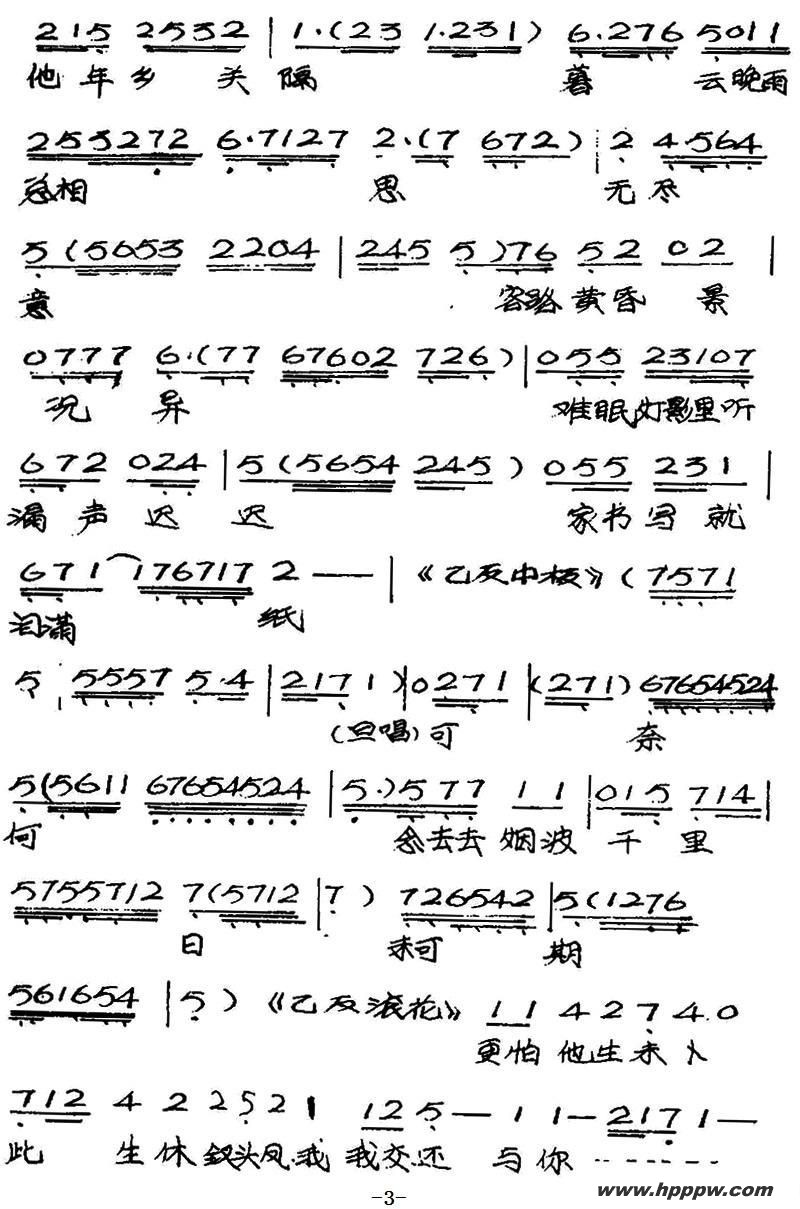 2 1 5 2 5 3 2 | 1 · ( 2 3 1 · 2 3 1 ) 6 · 2 7 6 5 0 1 1
他年乡关隔 暮云晚雨
2 5 3 2 7 2 6 · 7 1 2 7 2 · ( 7 6 7 2 ) | 2 4 · 5 6 4
总相思 无尽
5 ( 5 6 5 3 2 2 0 4 | 2 4 5 5 ) 7 6 5 2 0 2 |
意 客路黄昏景
0 7 7 7 6 · ( 7 7 6 7 6 0 2 7 2 6 ) | 0 5 5 2 3 1 0 7
况异 难眠灯影里听
6 7 2 0 2 4 | 5 ( 5 6 5 4 2 4 5 ) 0 5 5 2 3 1 |
漏声迟迟 家书写就
6 7 1 1 7 6 7 1 7 2 — — | 《乙反中板》 ( 7 5 7 1
泪满纸
5 5 5 5 7 5 · 4 | 2 1 7 1 ) | 0 2 7 1 | ( 2 7 1 ) 6 7 6 5 4 5 2 4
(旦唱)可奈
5 ( 5 6 1 1 6 7 6 5 4 5 2 4 | 5 · ) 5 7 7 1 1 | 0 1 5 7 1 4 |
何 念去去烟波千里
5 7 5 5 7 1 2 7 ( 5 7 1 2 | 7 ) 7 2 6 5 4 2 | 5 ( 1 2 7 6
日 未可期
5 6 1 6 5 4 | 5 ) 《乙反滚花》 1 1 4 2 7 4 · 0
更怕他生未卜
7 1 2 4 2 2 5 2 1 1 2 5 — 1 1 — 2 1 7 1 —
此生休 钗头凤 我我交还与你 --------
-3-
www.hpppw.com